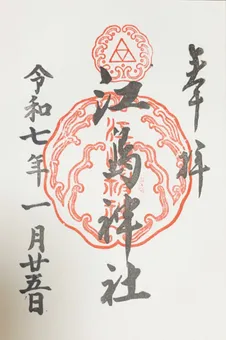 奉拝
江島神社
令和七年一月廿五日